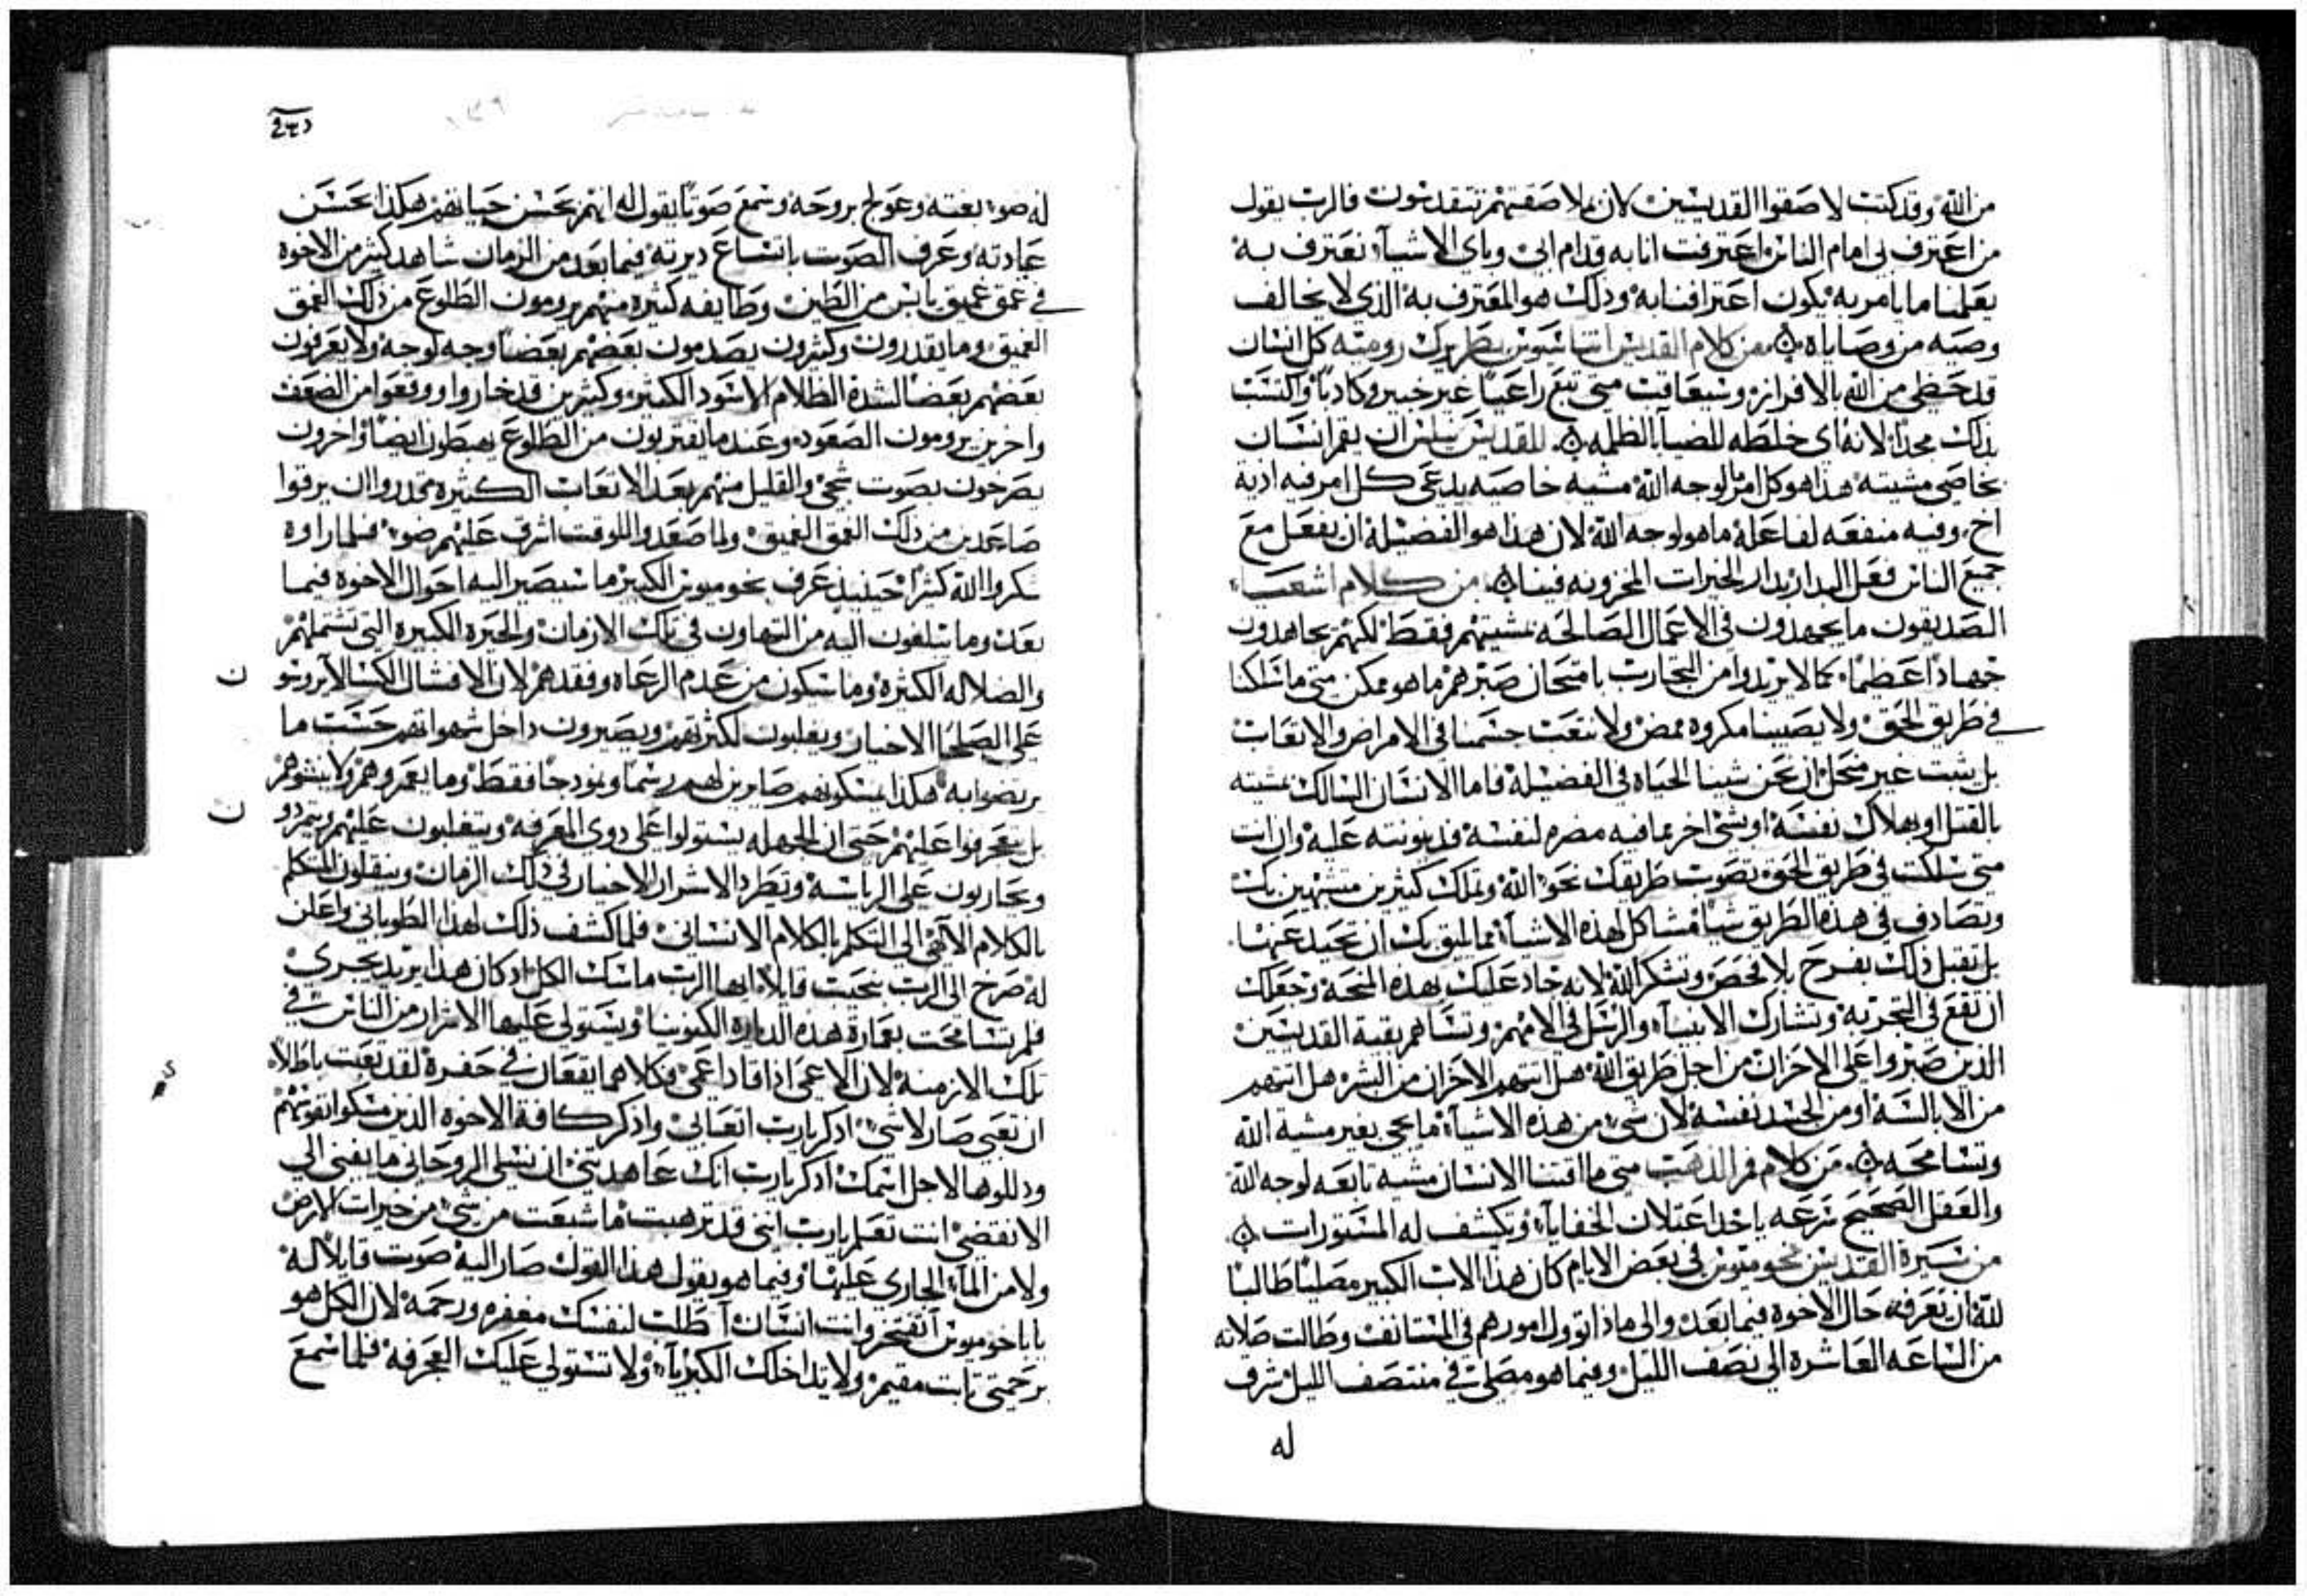 من الله وقد كتبت لاصقوا القديسين لان بملاصقتهم تتقدسون فالرب يقول
من اعترف بي امام الناس اعترفت انا به قدام ابي وباي الاشياء نعترف به
بعملنا ما يامر به يكون اعترافنا به وذلك هو المعترف به الذي لا يخالف
وصيه من وصاياه من كلام القديس اثناسيوس بطريرك روميه كل انسان
قد حظي من الله بالافراز وسيعاقب متي تبع راعيا غير خبير وكاذبا واكتسب
بذلك مجدا لانه اي خلطه للضيا بالظلمه للقديس نيلس ان يقم انسان
بخاصي مشيته هذا هو كل امر لوجه الله مشيه خاصيه يدعي كل امر فيه اذية
اخ وفيه منفعه لفاعله ما هو لوجه الله لان هذا هو الفضيله ان يفعل مع
جميع الناس فعل البدار بدار الخيرات المخزونه فينا من كلام اشعيا
الصديقون ما يجهدون في الاعمال الصالحه بمشيتهم فقط لكنهم يجاهدون
جهادا عظيما كما لا يرتدوا من التجارب بامتحان صبرهم ما هو ممكن متي ما سلكنا
في طريق الحق ولا يصيبنا مكروه ممض ولا تتعب جسمنا في الامراض والاتعاب
بل يثبت غير منحل ان نحن شينا الحياه في الفضيلة فاما الانسان السالك بمشيته
بالقتل او بهلاك نفسه او بشي اخر مما فيه مضره لنفسه فدينونته عليه وان انت
متي سلكت في طريق الحق تصوب طريقك نحو الله وتملك كثيرين متشبهين بك
وتصادف في هذه الطريق شيا مشاكل لهذه الاشياء فما يليق بك ان تحيد عنها
بل تقبل ذلك بفرح بلا فحص وتشكر الله لانه جاد عليك بهذه المنحة وجعلك
ان تقع في التجربه وتشارك الانبياء والرسل في الامهم وتساهم بقية القديسين
الذين صبروا علي الاحزان من اجل طريق الله هل اتتهم الاحزان من البشر هل اتتهم
من الابالسة او من الجسد نفسه لان شي من هذه الاشياء ما يجي بغير مشية الله
وتسامحه من كلام فم الذهب متي ما اقتنا الانسان مشيه تابعه لوجه الله
والعقل الصحيح نزعه ياخذ اعتلان الخفايا ويكشف له المستورات
من سيرة القديس بخوميوس في بعض الايام كان هذا الاب الكبير مصليا طالبا
لله ان يعرفه حال الاخوه فيما بعد والي ماذا تؤول امورهم في المستانف وطالت صلاته
من الساعه العاشره الي نصف الليل وفيما هو مصلي في منتصف الليل شرف
له
له ضوء بغته وعولج بروحه وسمع صوتا يقول له انهم بحسن حياتهم هكذا يحسن
عبادته وعرف الصوت باتساع ديرته فيما بعد من الزمان شاهد كثير من الاخوه
في عمق عميق يابس من الطين وطايفه كثيره منهم يرومون الطلوع من ذلك العمق
العميق وما يقدرون وكثيرون يصدمون بعضهم بعضا وجه لوجه ولا يعرفون
بعضهم بعضا لشدة الظلام الاسود الكثير وكثيرين قد خاروا ووقعوا من الضعف
واخرين يرومون الصعود وعندما يقتربون من الطلوع يهبطون ايضا واخرون
يصرخون بصوت شجي والقليل منهم بعد الاتعاب الكثيره تحدروا ان يرقوا
صاعدين من ذلك العمق العميق ولما صعدوا للوقت اشرق عليهم ضوء فلما راوه
شكروا الله كثيرا حينيذ عرف بخوميوس الكبير ما سيصير اليه احوال الاخوه فيما
بعد وما يبلغون اليه من التهاون في تلك الازمان والحيره الكبيره التي تشتملهم
والضلاله الكثيره وما سيكون من عدم الرعاه وفقدهم لان الافشال الكسالا يرووسو
علي الصلحا الاخيار ويغلبون لكثرتهم ويصيرون داخل شهواتهم حسب ما
يرتضوا به هكذا يسكونهم صايرين لهم رسما ونموذجا فقط وما يعمروهم ولا ينشوهم
بل يتعجرفوا عليهم حتي ان الجهله يستولوا علي ذوي المعرفه ويتغلبون عليهم ويتمردو
ويحاربون علي الرياسة وتطرد الاشرار الاخيار في ذلك الزمان وينقلون المتكلم
بالكلام الالهي الي التكلم بالكلام الانساني فلما كشف ذلك لهذا الطوباني واعلن
له صرخ الي الرب بنحيب قايلا ايها الرب ماسك الكل اذ كان هذا يريد يجري
فلم تسامحت بعمارة هذه الدياره الكنوبيا ويستولي عليها الاشرار من الناس في
تلك الازمنة لان الاعمي اذا قاد اعمي فكلاهما يقعان في حفرة لقد تعبت باطلا
ان تعبي صار لاشي اذكر يارب اتعابي واذكر كافة الاخوه الذين مسكوا نفوسهم
وذللوها لاجل اسمك اذكر يارب انك عاهدتني ان نسلي الروحاني ما يفني الي
الانقضي انت تعلم يارب انني قد ترهبت ما شبعت من شي من خيرات الارض
ولا من الماء الجاري عليها وفيما هو يقول هذا القول صار اليه صوت قايلا له
يا باخوميوس اتفتخر وانت انسان اطلب لنفسك مغفره ورحمه لان الكل هو
برحمتي تابت مقيم ولا يداخلك الكبريا ولا تستولي عليك العجرفه فلما سمع